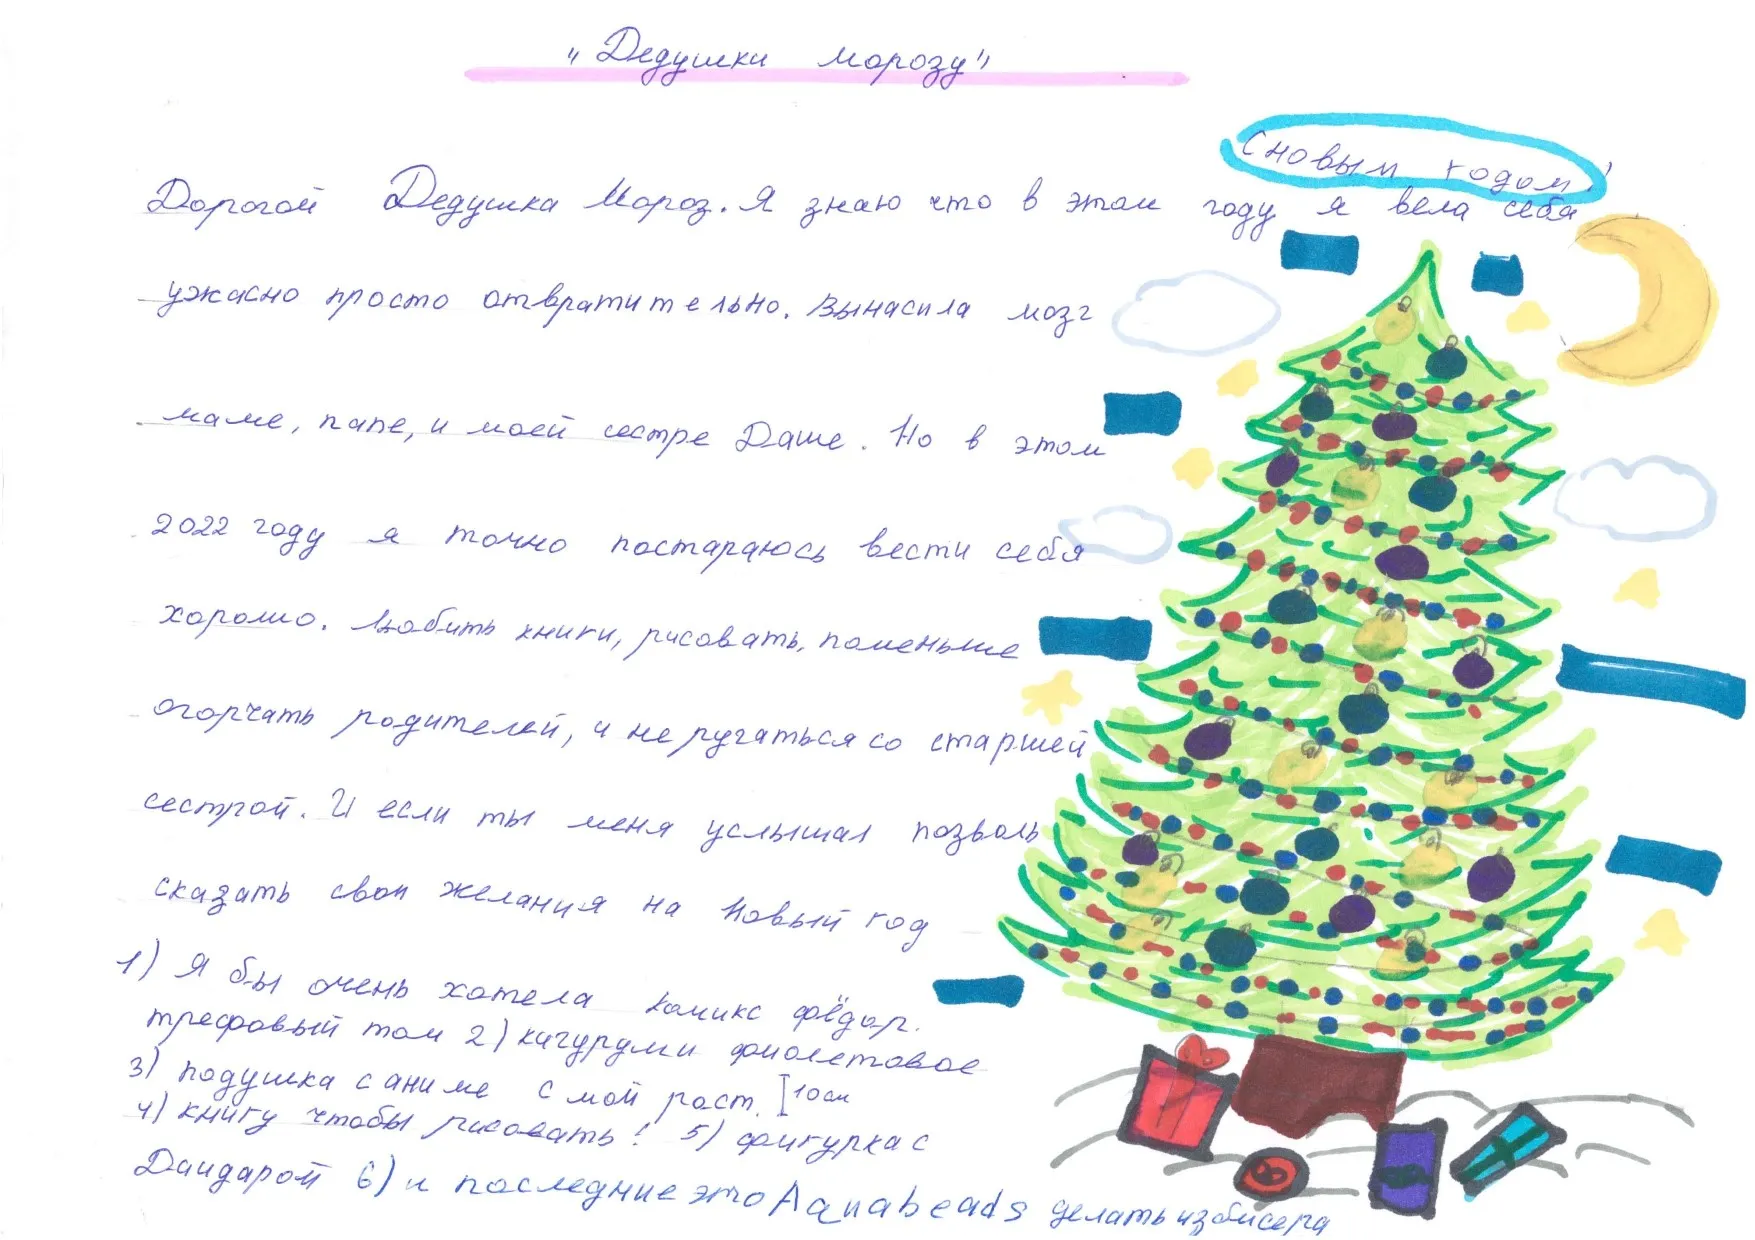 "Дедушки морозу"
С новым годом!
Дорогой Дедушка Мороз. Я знаю что в этом году я вела себя
ужасно просто отвратительно. Вынасила мозг
маме, папе, и моей сестре Даше. Но в этом
2022 году я точно постараюсь вести себя
хорошо. Любить книги, рисовать, поменьше
огорчать родителей, и не ругаться со старшей
сестрой. И если ты меня услышал позволь
сказать свои желания на Новый год
1) Я бы очень хотела комикс фёдор.
трефовый том 2) кигуруми фиолетовое
3) подушка с аниме с мой рост. 10см
4) книгу чтобы рисовать! 5) фигурка с
Даидарой 6) и последние это Aquabeads делать из бисера